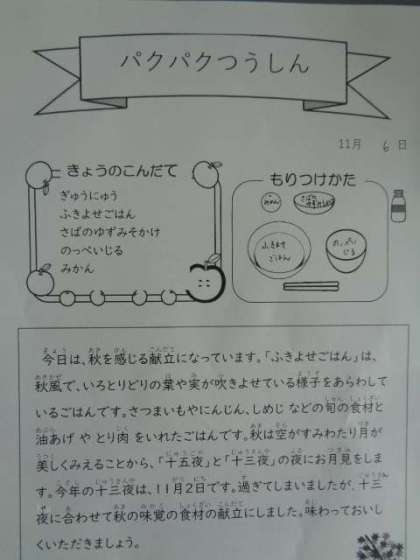 パクパクつうしん
11月 6 日
きょうのこんだて
ぎゅうにゅう
ふきよせごはん
さばのゆずみそかけ
のっぺいじる
みかん
もりつけかた
みかん
ふきよせ
ごはん
のっぺい
じる
今日は、秋を感じる献立になっています。「ふきよせごはん」は、
秋風で、いろとりどりの葉や実が吹きよせている様子をあらわして
いるごはんです。さつまいもやにんじん、しめじ などの旬の食材と
油あげ や とり肉 をいれたごはんです。秋は空がすみわたり月が
美しくみえることから、「十五夜」と「十三夜」の夜にお月見をしま
す。今年の十三夜は、11月2日です。過ぎてしまいましたが、十三
夜に合わせて秋の味覚の食材の献立にしました。味わっておいし
くいただきましょう。